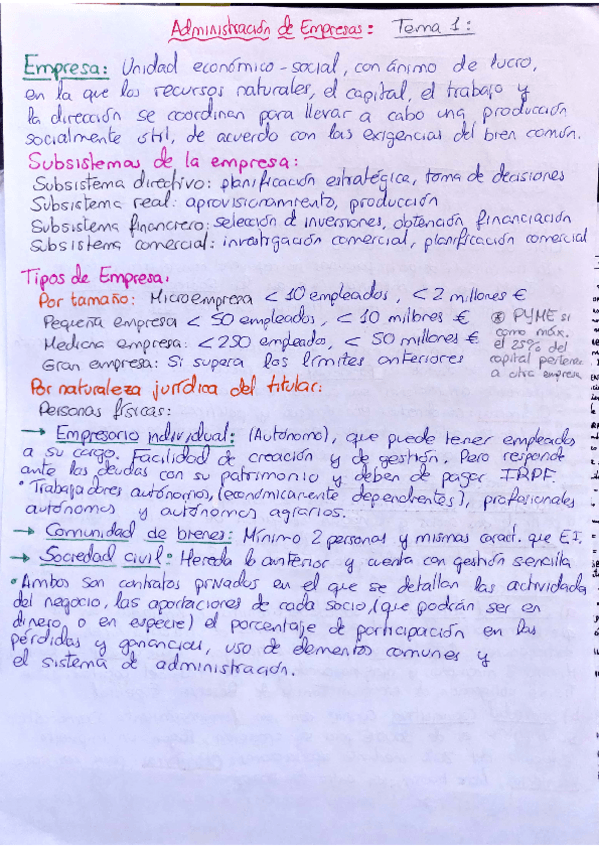 Administración de Empresas: Tema 1:
Empresa: Unidad económico-social, con ánimo de lucro,
en la que los recursos naturales, el capital, el trabajo y
la dirección se coordinan para llevar a cabo una producción
socialmente útil, de acuerdo con las exigencias del bien común.
Subsistemas de la empresa:
Subsistema directivo: planificación estratégica, toma de decisiones
Subsistema real: aprovisionamiento, producción
Subsistema financiero: selección de inversiones, obtención financiación
Subsistema comercial: investigación comercial, planificación comercial
Tipos de Empresa:
Por tamaño: Microempresa < 10 empleados, < 2 millones €
Pequeña empresa < 50 empleados, < 10 millones €
Mediana empresa: < 250 empleados, < 50 millones €
Gran empresa: Si supera los límites anteriores
* PYME si
como máx.
el 25% del
capital pertenece
a otra empresa
Por naturaleza jurídica del titular:
Personas físicas:
→ Empresario individual: (Autónomo), que puede tener empleados
a su cargo. Facilidad de creación y de gestión. Pero responde
ante las deudas con su patrimonio y deben de pagar IRPF.
• Trabajadores autónomos, (económicamente dependientes), profesionales
autónomos y autónomos agrarios.
→ Comunidad de bienes: Mínimo 2 personas y mismas caract. que EI.
→ Sociedad civil: Hereda lo anterior y cuenta con gestión sencilla
• Ambos son contratos privados en el que se detallan las actividades
del negocio, las aportaciones de cada socio, (que podrán ser en
dinero o en especie) el porcentaje de participación en las
pérdidas y ganancias, uso de elementos comunes y
el sistema de administración.